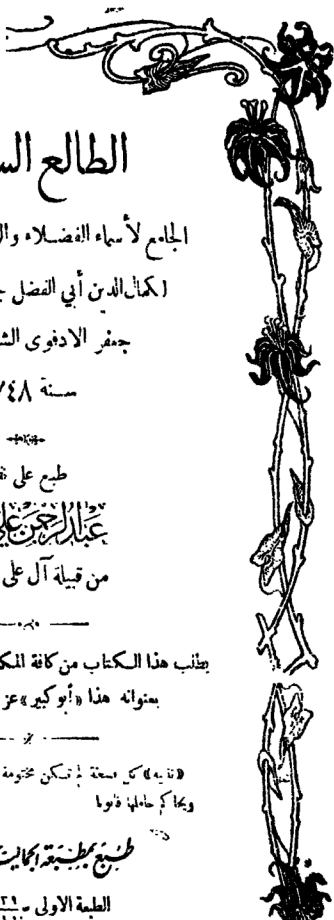 الطالع
الجامع لأسماء الفضلاء
لكمال الدين أبي الفضل
جعفر الادفوى
سنة ٧٤٨
طبع على
عبد الرحمن علي
من قبيلة آل على
يطلب هذا الكتاب من كافة
بعنوانه هذا «أبو كبير» عز
«تنبيه» كل نسخة لم تكن مختومة
ويحاكم حاملها قانونا
طبع بمطبعة الجمالية
الطبعة الاولى